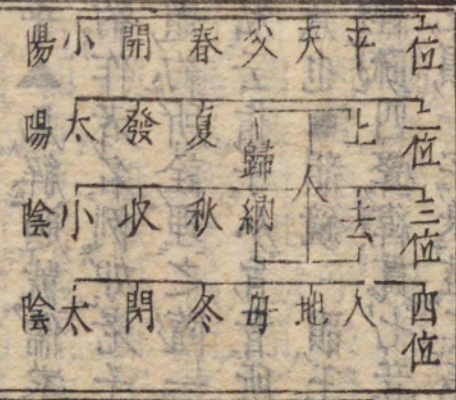 一位 平 天 父 春 開 小陽
二位 上 人 歸 夏 發 太陽
三位 去 納 秋 收 小陰
四位 入 地 母 冬 閉 太陰